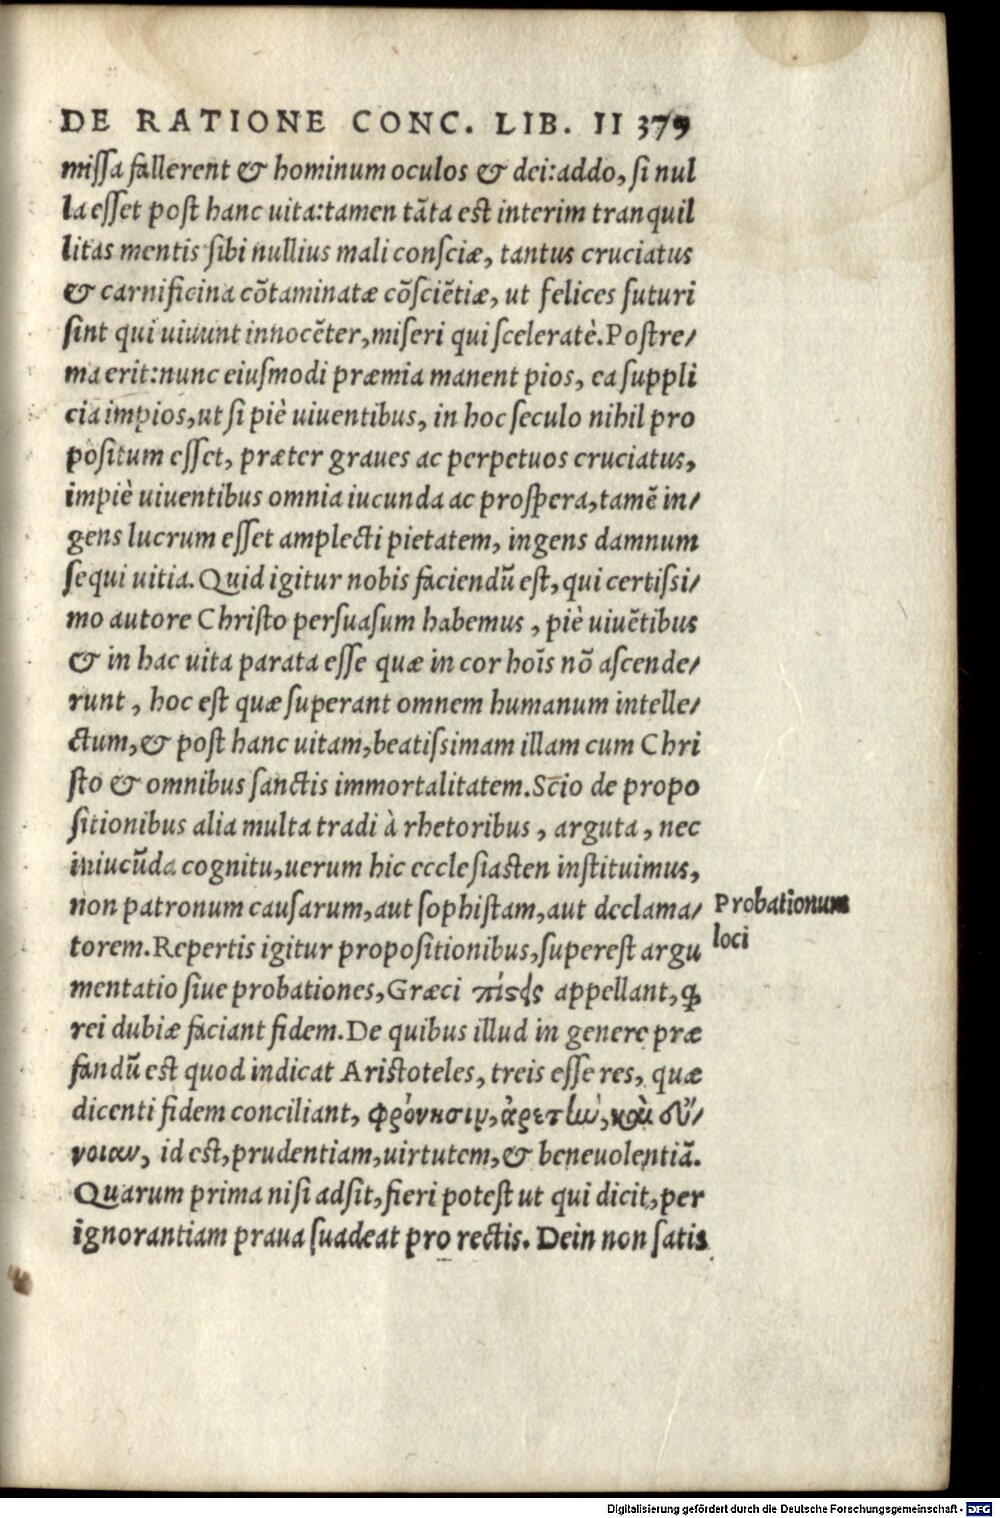 DE RATIONE CONC. LIB. II 379
missa fallerent & hominum oculos & dei:addo, si nul
la esset post hanc uita:tamen tāta est interim tranquil
litas mentis sibi nullius mali consciæ, tantus cruciatus
& carnificina cōtaminatæ cōsciētiæ, ut felices futuri
sint qui uiuunt innocēter, miseri qui sceleratè. Postre/
ma erit:nunc eiusmodi præmia manent pios, ea suppli
cia impios, ut si piè uiuentibus, in hoc seculo nihil pro
positum esset, præter graues ac perpetuos cruciatus,
impiè uiuentibus omnia iucunda ac prospera, tamē in/
gens lucrum esset amplecti pietatem, ingens damnum
sequi uitia. Quid igitur nobis faciendū est, qui certissi/
mo autore Christo persuasum habemus, piè uiuētibus
& in hac uita parata esse quæ in cor hoīs nō ascende/
runt, hoc est quæ superant omnem humanum intelle/
ctum, & post hanc uitam, beatissimam illam cum Chri
sto & omnibus sanctis immortalitatem. Scio de propo
sitionibus alia multa tradi à rhetoribus, arguta, nec
iniucūda cognitu, uerum hic ecclesiasten instituimus,
non patronum causarum, aut sophistam, aut declama/
torem. Repertis igitur propositionibus, superest argu
mentatio siue probationes, Græci πίστεις appellant, ꝙ
rei dubiæ faciant fidem. De quibus illud in genere præ
fandū est quod indicat Aristoteles, treis esse res, quæ
dicenti fidem conciliant, φρόνησιν, ἀρετὴν, καὶ εὔ/
νοιαν, id est, prudentiam, uirtutem, & beneuolentiā.
Quarum prima nisi adsit, fieri potest ut qui dicit, per
ignorantiam praua suadeat pro rectis. Dein non satis
Probationum
loci
Digitalisierung gefördert durch die Deutsche Forschungsgemeinschaft - DFG